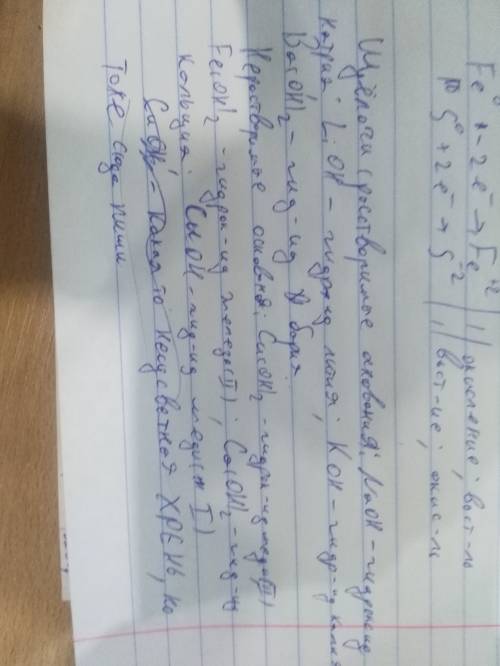 Fe⁰ - 2e⁻ → Fe⁺² | 1 | окисление; восст-ль
S⁰ + 2e⁻ → S⁻² | 1 | восст-ие; окис-ль
Щёлочи (растворимые основания: NaOH - гидроксид
натрия; LiOH - гидр-ид лития; KOH - гидр-ид калия
Ba(OH)₂ - гид-ид бария.
Нерастворимые основания: Cu(OH)₂ - гидрок-ид меди(II)
Fe(OH)₂ - гидрок-ид железа(II); Ca(OH)₂ - гид-ид
кальция; CuOH - гид-ид меди(I)
CuOH - какая то неизвестная ХРЕНЬ, но
тоже сюда пиши